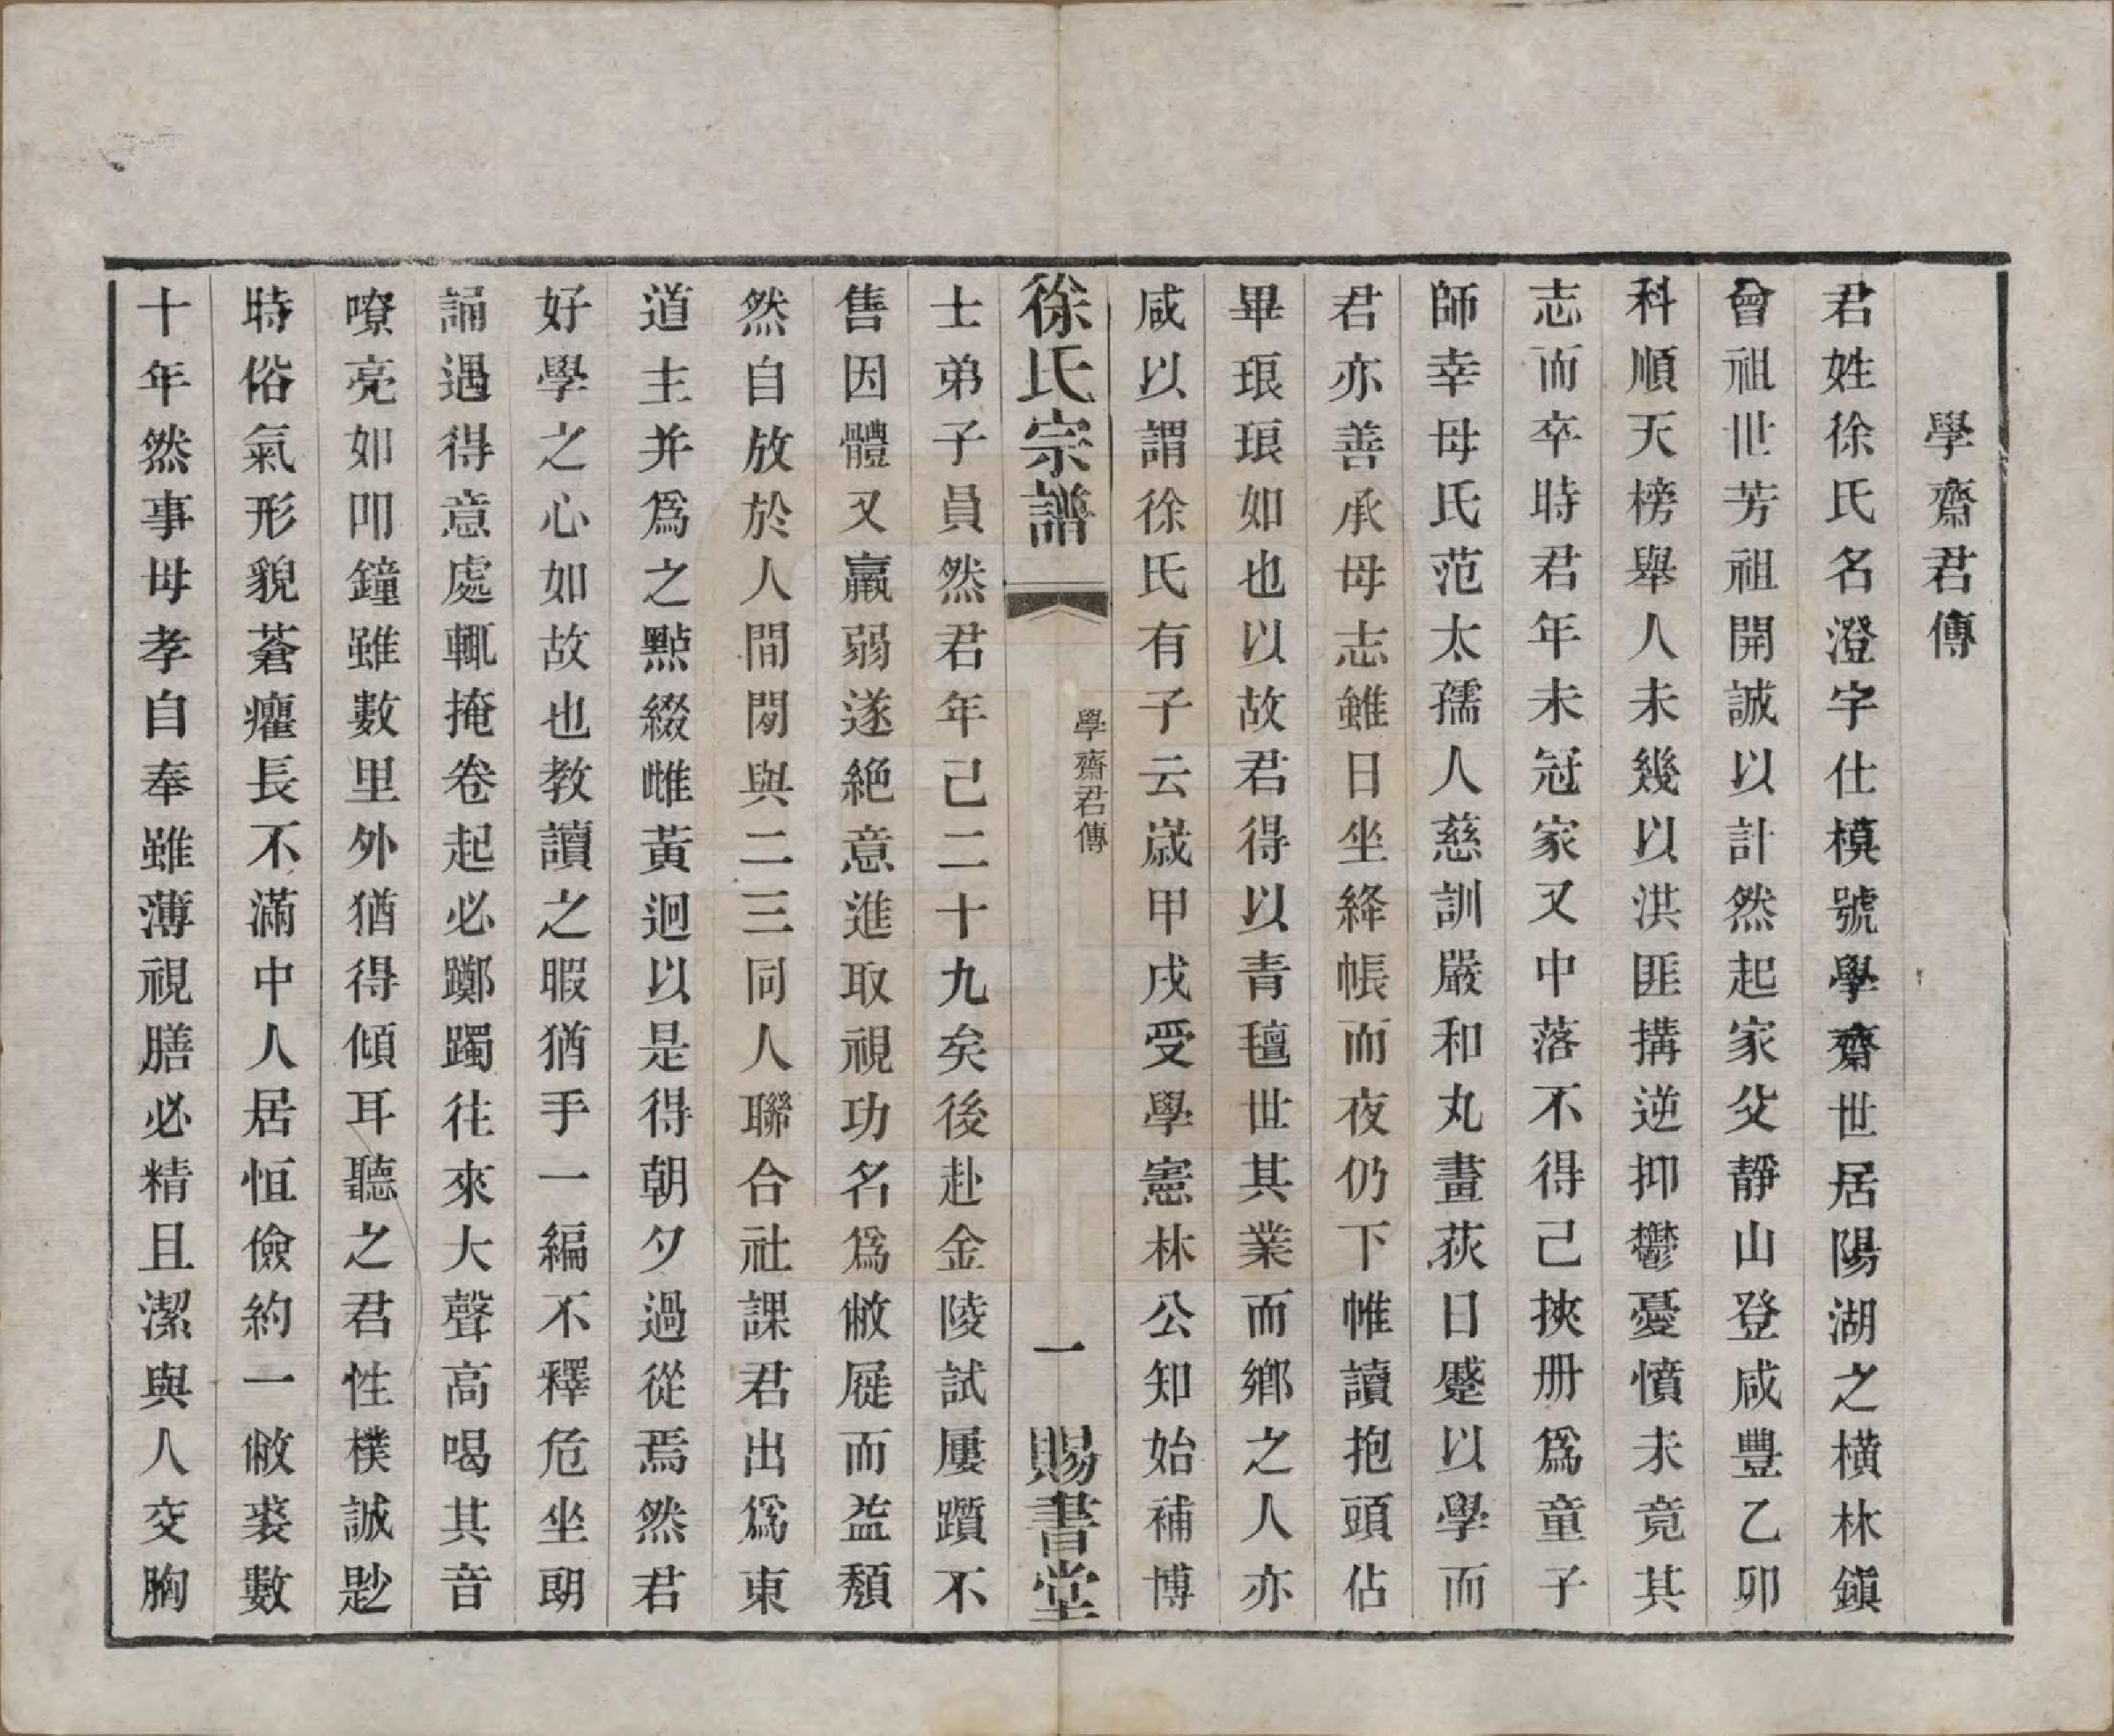 學齋君傳
君姓徐氏名澄字仕模號學齋世居陽湖之橫林鎭
曾祖世芳祖開誠以計然起家父靜山登咸豐乙卯
科順天榜舉人未幾以洪匪搆逆抑鬱憂憤未竟其
志而卒時君年未冠家又中落不得已挾册爲童子
師幸母氏范太孺人慈訓嚴和丸畫荻日蹙以學而
君亦善承母志雖日坐絳帳而夜仍下帷讀抱頭佔
畢琅琅如也以故君得以靑氊世其業而鄕之人亦
咸以謂徐氏有子云嵗甲戌受學憲林公知始補博
徐氏宗譜
學齋君傳
一
賜書堂
士弟子員然君年已二十九矣後赴金陵試屢躓不
售因體又羸弱遂絕意進取視功名爲敝屣而益頽
然自放於人間閒與二三同人聯合社課君出爲東
道主并爲之點綴雌黃迴以是得朝夕過從焉然君
好學之心如故也教讀之暇猶手一編不釋危坐朗
誦遇得意處輒掩卷起必躑躅往來大聲高喝其音
嘹亮如叩鐘雖數里外猶得傾耳聽之君性樸誠尟
時俗氣形貌蒼癯長不滿中人居恒儉約一敝裘數
十年然事母孝自奉雖薄視膳必精且潔與人交胸